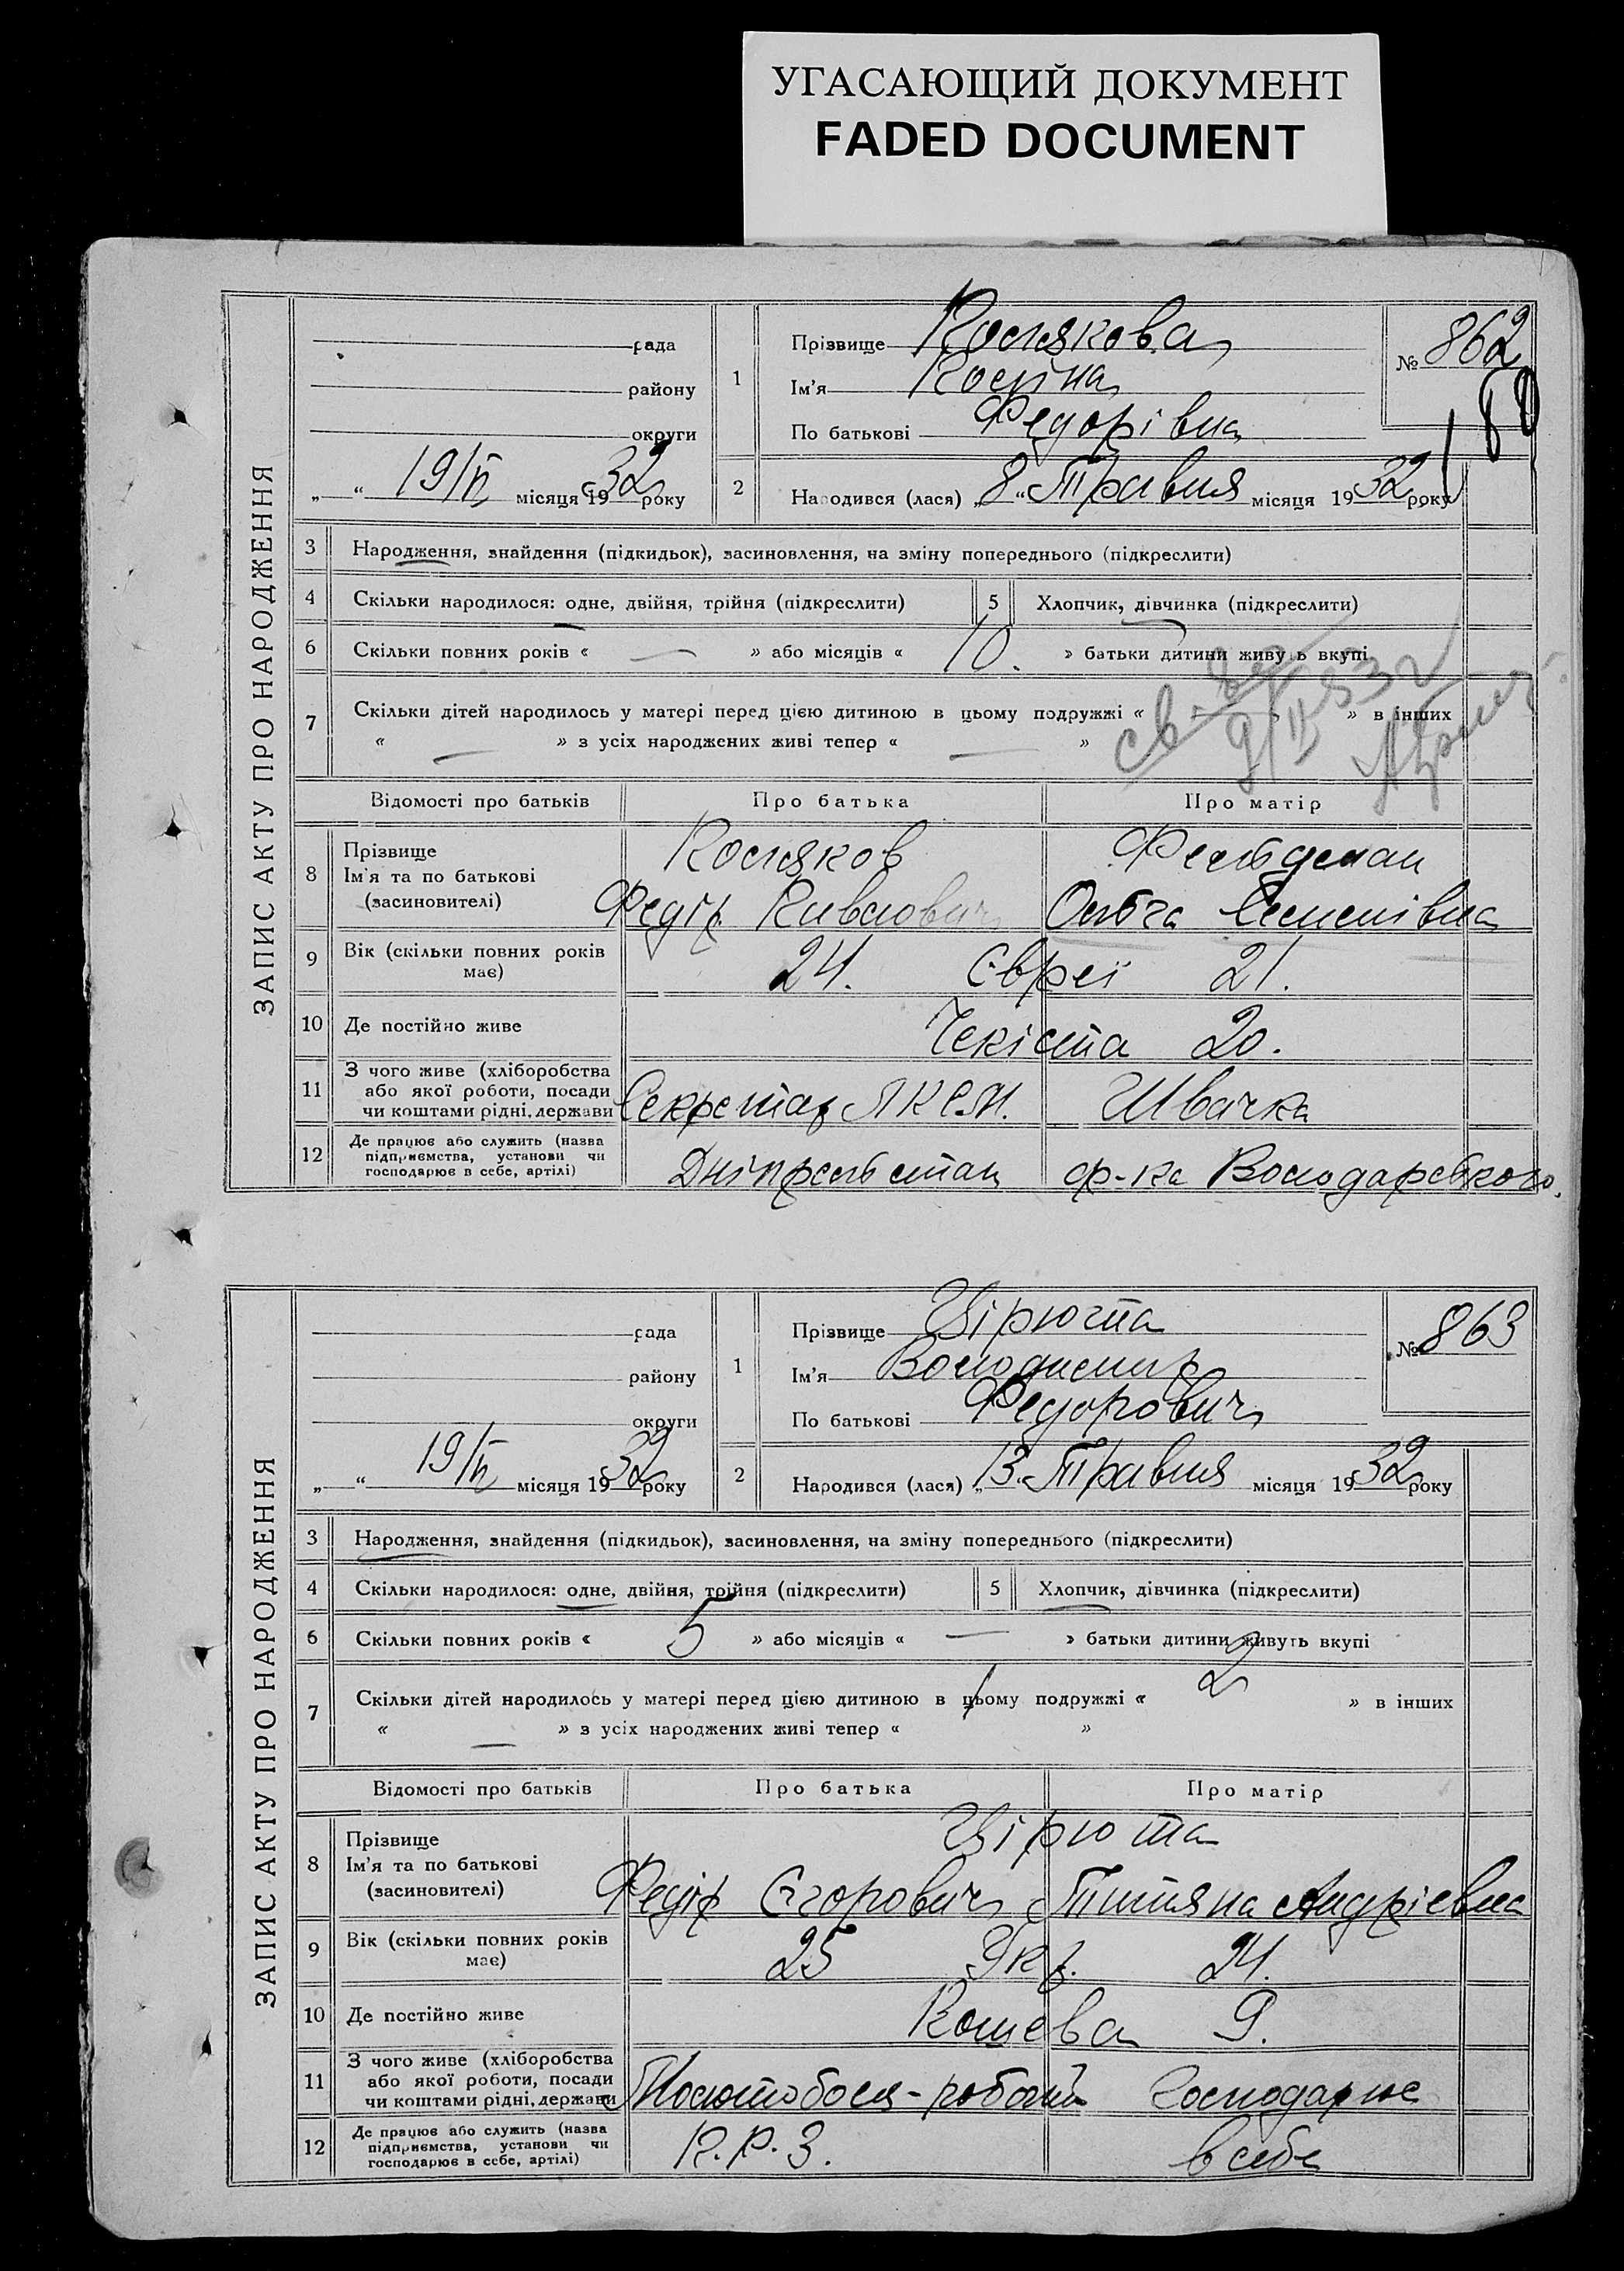 УГАСАЮЩИЙ ДОКУМЕНТ
FADED DOCUMENT
ЗАПИС АКТУ ПРО НАРОДЖЕННЯ
рада
району
округи
„ “ 19/VI місяця 1932 року
1
Прізвище Колякова
Ім'я
По батькові Федорівна
№ 862
2
Народився (лася) „8“ Травня місяця 1932 року
3 Народження, знайдення (підкидьок), засиновлення, на зміну попереднього (підкреслити)
4 Скільки народилося: одне, двійня, трійня (підкреслити) 5 Хлопчик, дівчинка (підкреслити)
6 Скільки повних років « — » або місяців « 10. » батьки дитини живуть вкупі
7 Скільки дітей народилось у матері перед цією дитиною в цьому подружжі « » в інших
« — » з усіх народжених живі тепер « — »
Відомості про батьків Про батька Про матір
8 Прізвище
Ім'я та по батькові
(засновители)
Фельдман
Федір Ольга Семенівна
9 Вік (скільки повних років має) 24. Євреї 21.
10 Де постійно живе Чекіста 20.
11 З чого живе (хліборобства або якої роботи, посади чи коштами рідні, держави Секретар ЛКСМ. Швачка
12 Де працює або служить (назва підприємства, установи чи господарює в себе, артілі) Дніпросельстан ф-ка Володарського.
ЗАПИС АКТУ ПРО НАРОДЖЕННЯ
рада
району
округи
„ “ 19/VI місяця 1932 року
1
Прізвище Цірюта
Ім'я Володимир
По батькові Федорович
№ 863
2
Народився (лася) „13“ Травня місяця 1932 року
3 Народження, знайдення (підкидьок), засиновлення, на зміну попереднього (підкреслити)
4 Скільки народилося: одне, двійня, трійня (підкреслити) 5 Хлопчик, дівчинка (підкреслити)
6 Скільки повних років « 5 » або місяців « — » батьки дитини живуть вкупі
7 Скільки дітей народилось у матері перед цією дитиною в цьому подружжі « 2 » в інших
« — » з усіх народжених живі тепер « 1 »
Відомості про батьків Про батька Про матір
8 Прізвище
Ім'я та по батькові
(засиновителі)
Цірюта
Федір Єгорович Титяна Андріевна
9 Вік (скільки повних років має) 25 Укр. 24.
10 Де постійно живе Кошева 9.
11 З чого живе (хліборобства або якої роботи, посади чи коштами рідні, держави Молотобоєц-робітн Господарює
12 Де працює або служить (назва підприємства, установи чи господарює в себе, артілі) К.Р.З. в себе